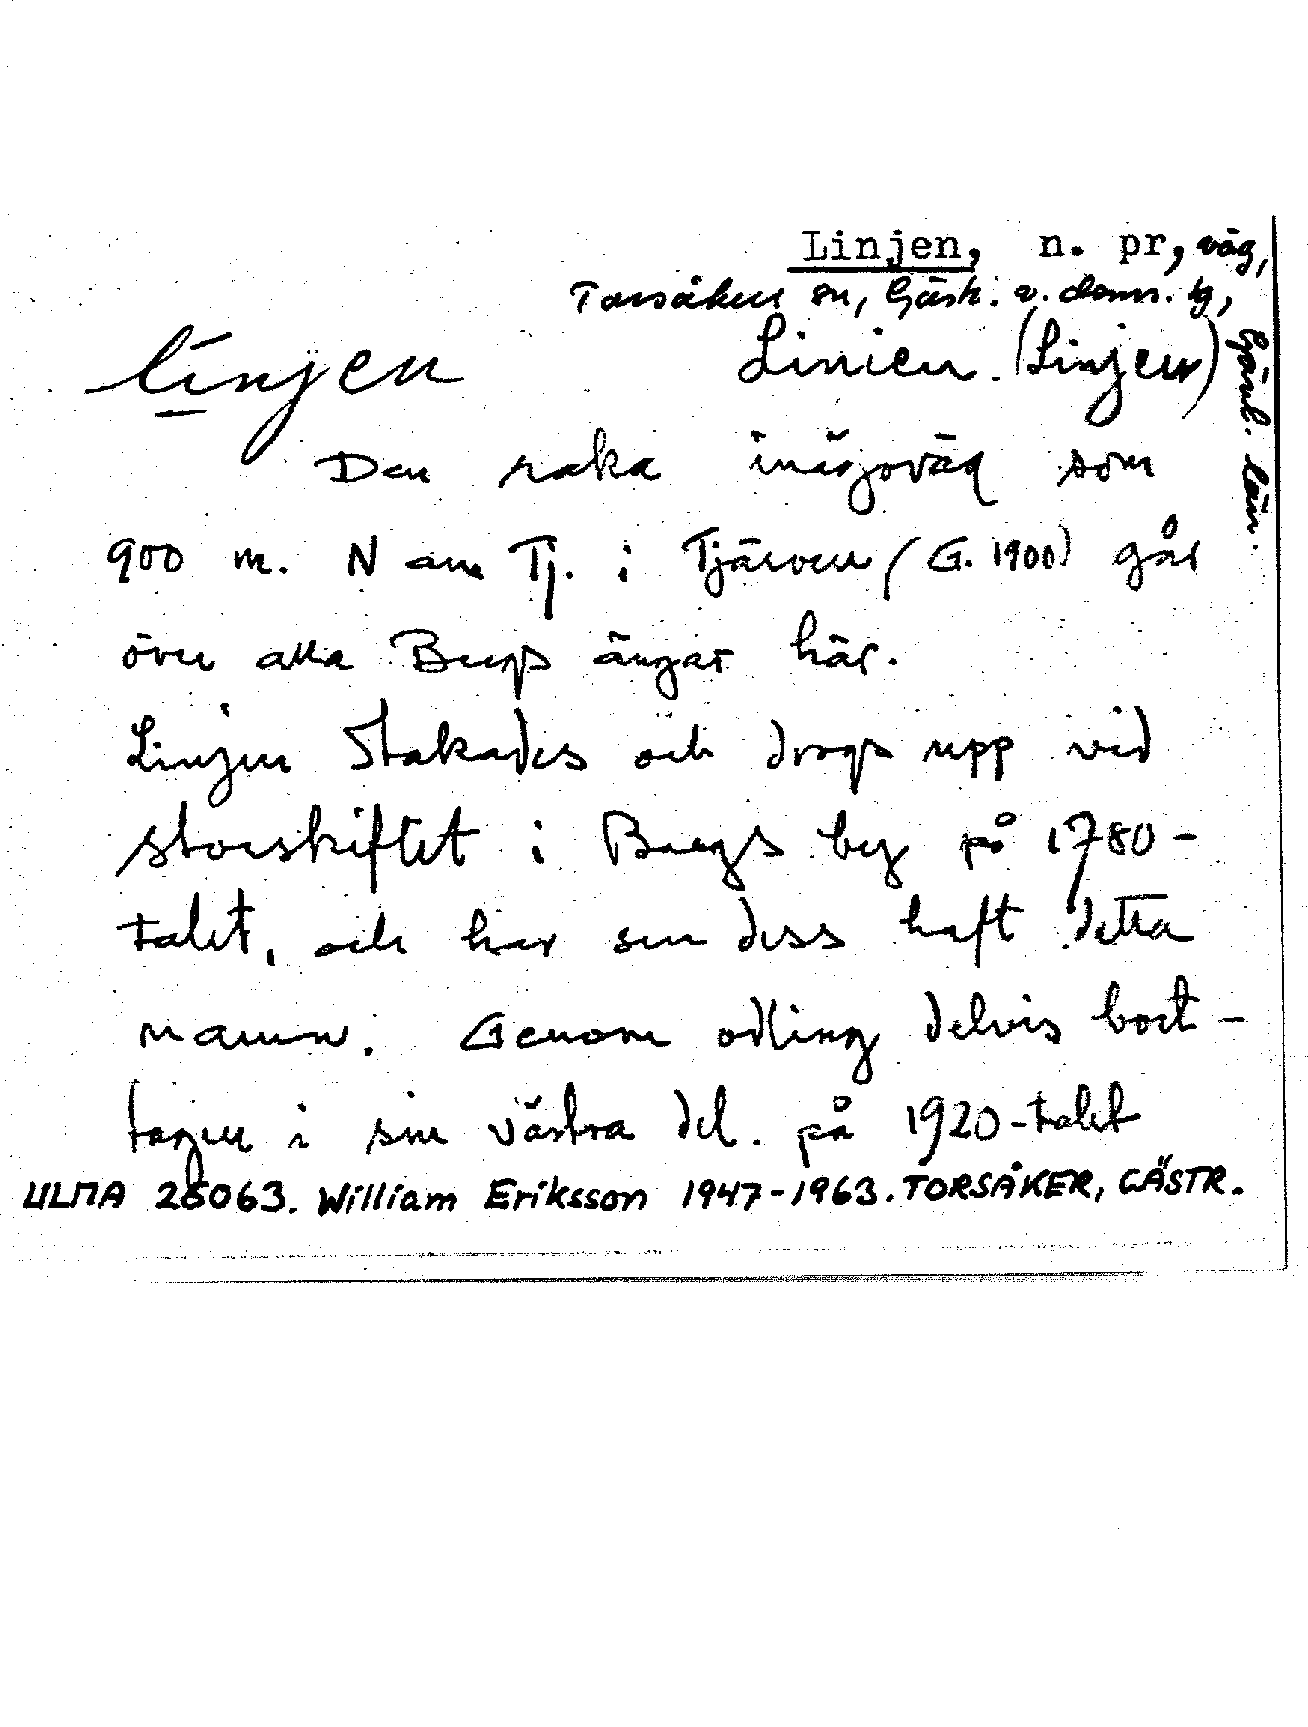 Linjen, n. pr, väg,
Torsåkers sn, Gästr. v. doms. tg,
Gävl. län.
línjen
Linien. (Linjen)
Den raka inägoväg som
900 m. N om Tj. i Tjärven (G. 1900) går
över alla Bergs ängar här.
Linjen stakades och drogs upp vid
storskiftet i Bergs by på 1780-
talet, och har sen dess haft detta
namn. Genom odling delvis bort-
tagen i sin västra del. på 1920-talet
ULMA 26063. William Eriksson 1947-1963. TORSÅKER, GÄSTR.